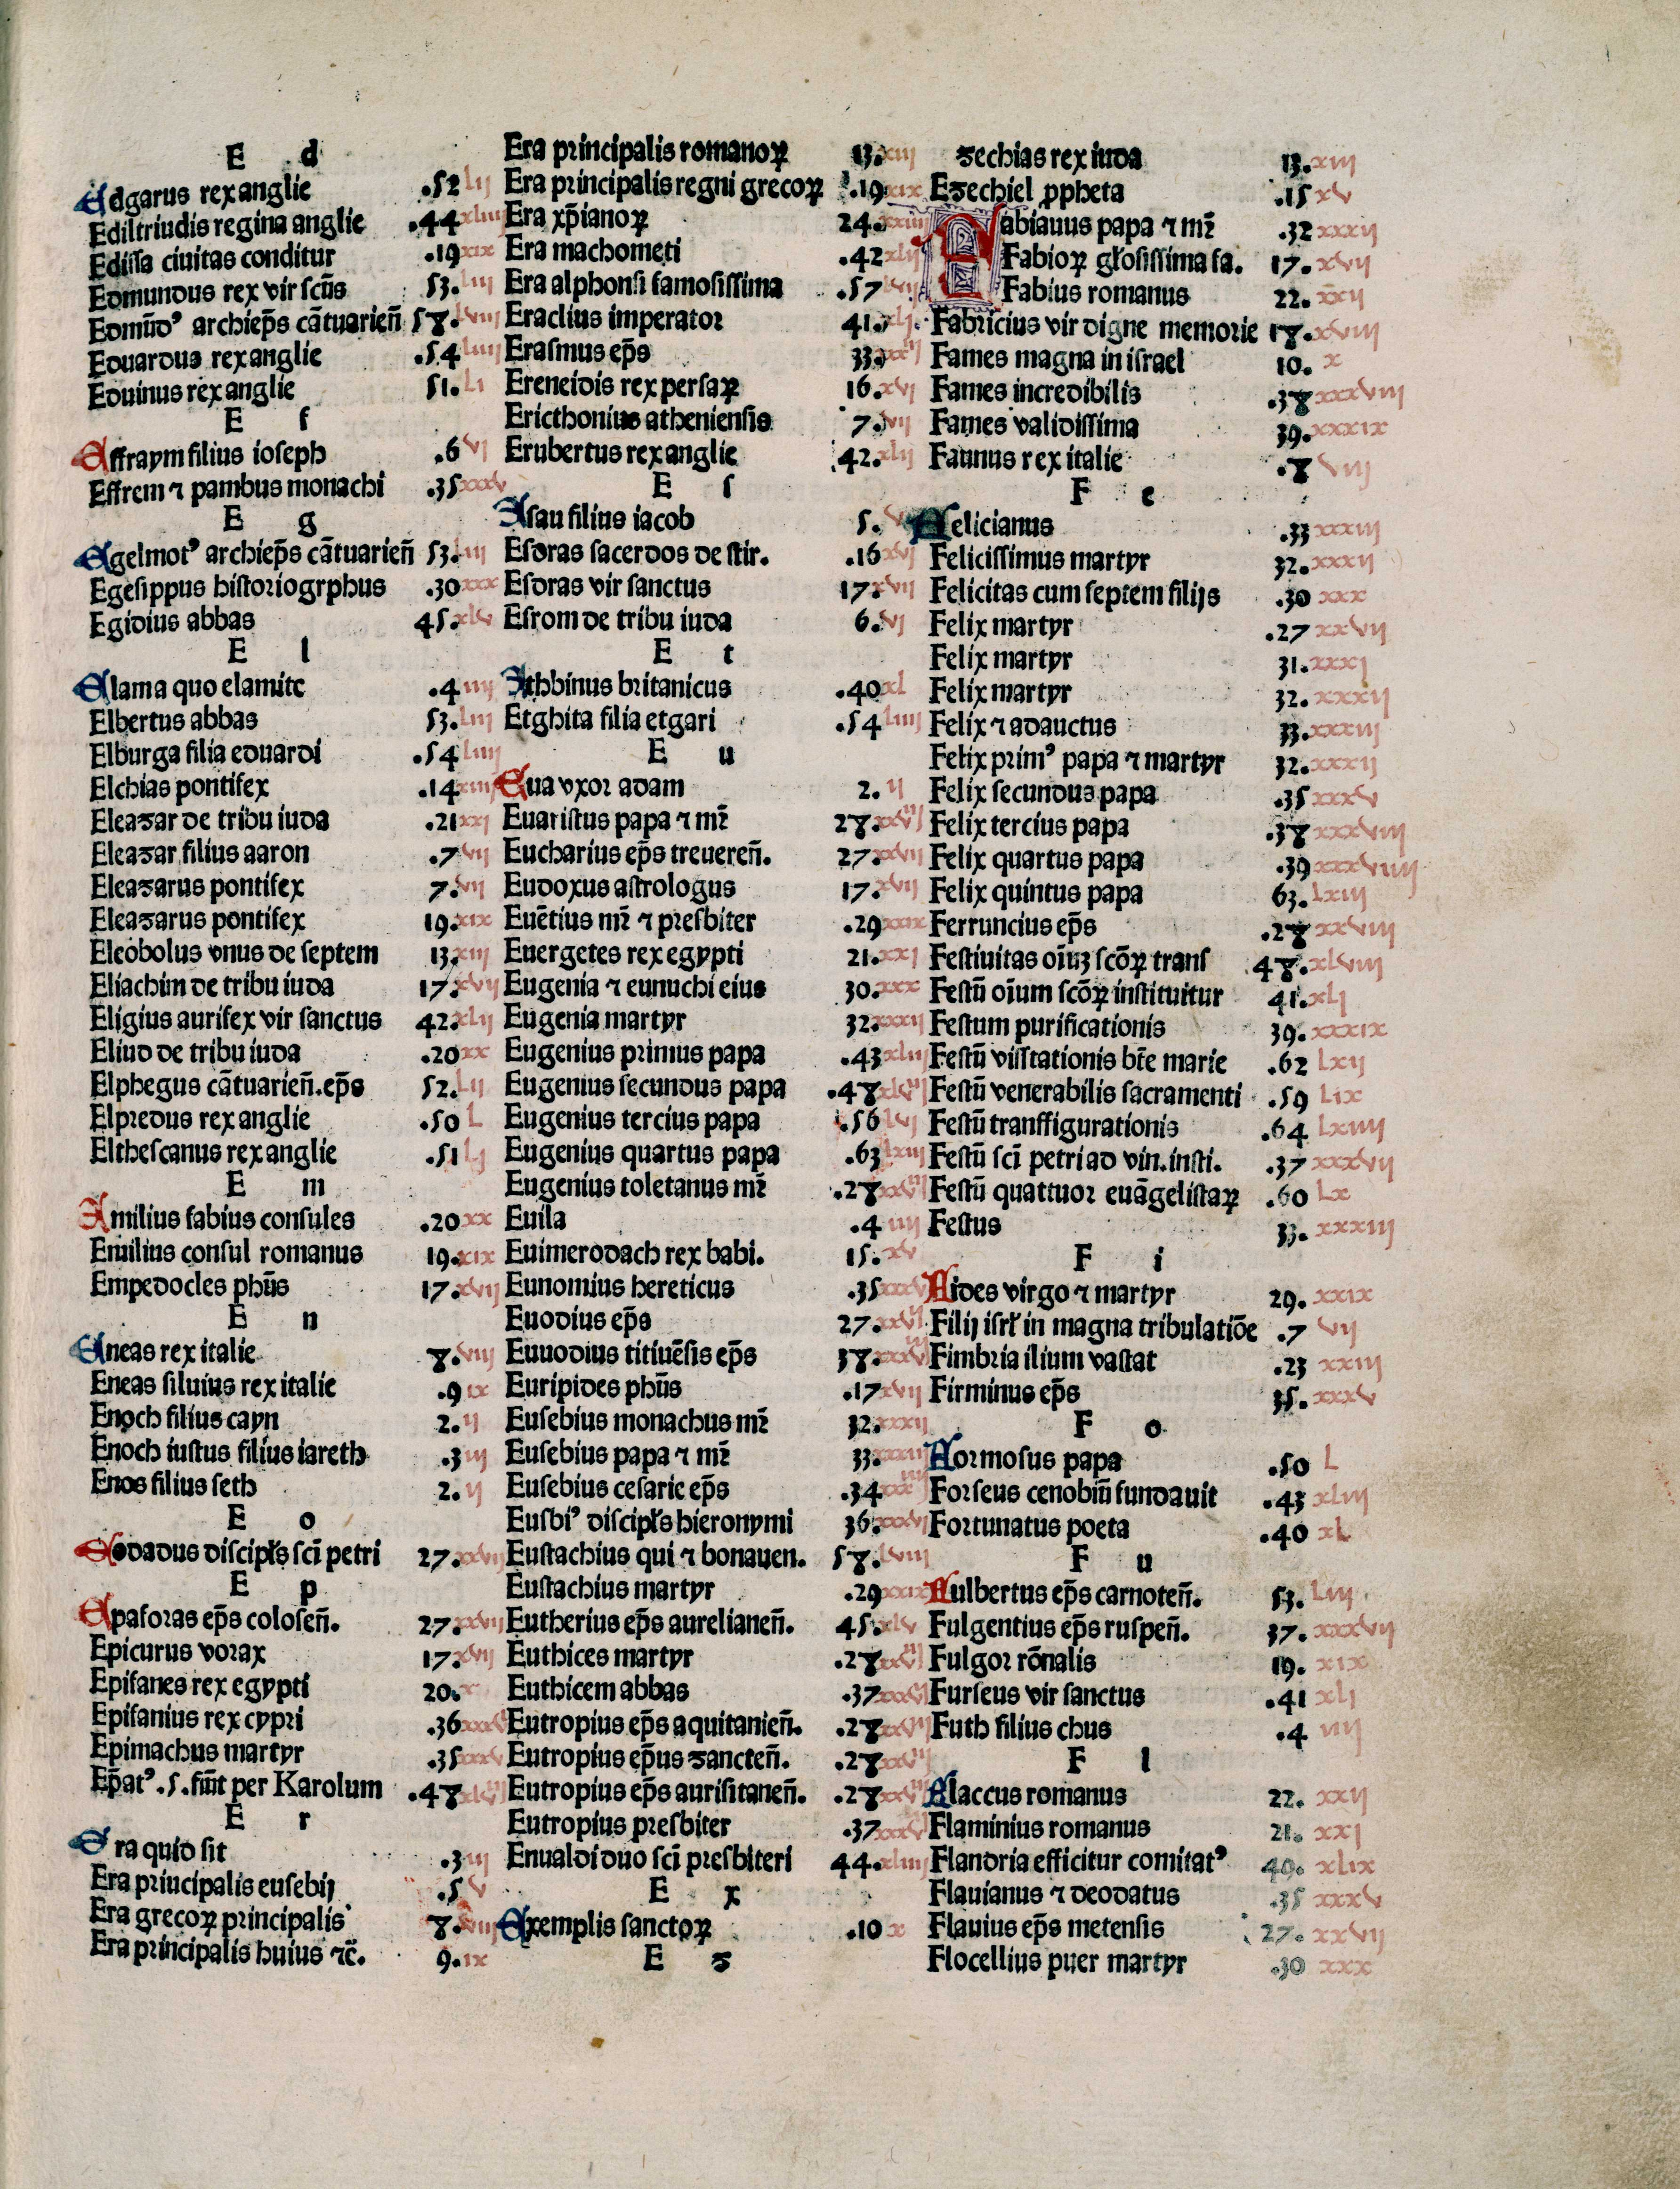 E d
Edgarus rex anglie .52 lij
Ediltriudis regina anglie .44 xliiij
Edissa ciuitas conditur .19 xix
Edmundus rex vir scūs 53. liij
Edmūdꝰ archiep̄s cātuarieñ 58. lviij
Eduardus rex anglie .54 liiij
Eduinus rex anglie 51. Li
E f
Effraym filius ioseph .6 vj
Effrem ⁊ pambus monachi .35 xxxv
E g
Egelmotꝰ archiep̄s cātuarieñ 53. liij
Egesippus historiogrphus .30 xxx
Egidius abbas 45. xlv
E l
Elama quo elamite .4 iiij
Elbertus abbas 53. liij
Elburga filia eduardi .54 liiij
Elchias pontifex .14 xiiij
Eleazar de tribu iuda .21 xxj
Eleazar filius aaron .7 vij
Eleazarus pontifex 7. vij
Eleazarus pontifex 19. xix
Eleobolus vnus de septem 13. xiij
Eliachim de tribu iuda 17. xvij
Eligius aurifex vir sanctus 42. xlij
Eliud de tribu iuda .20 xx
Elphegus cātuarieñ. ep̄s 52. Lij
Elpredus rex anglie .50 L
Elthescanus rex anglie .51 Lj
E m
Emilius fabius consules .20 xx
Emilius consul romanus 19. xix
Empedocles phūs 17. xvij
E n
Eneas rex italie 8. viij
Eneas siluius rex italie .9 ix
Enoch filius cayn 2. ij
Enoch iustus filius iareth .3 iij
Enos filius seth 2. ij
E o
Eodadus discipƚs scī petri 27. xxvij
E p
Epaforas ep̄s coloseñ. 27. xxvij
Epicurus vorax 17. xvij
Epifanes rex egypti 20. x
Epifanius rex cypri .36 xxxvj
Epimachus martyr .35 xxxv
Ep̄atꝰ .5. fiūt per Karolum .48 xlviij
E r
Era quid sit .3 iij
Era priucipalis eusebij .5 V
Era grecoꝝ principalis 8. viij
Era principalis huius ⁊c̄. 9. ix
Era principalis romanoꝝ 13. xiij
Era principalis regni grecoꝝ .19 xix
Era xp̄ianoꝝ 24. xxiiij
Era machometi .42 xlij
Era alphonsi famosissima .57 lvij
Eraclius imperator 41. xlj
Erasmus ep̄s 33. xxxiij
Ereneidis rex persaꝝ 16. xvj
Ericthonius atheniensis 7. vij
Erubertus rex anglie 42. xlij
E s
Esau filius iacob 5. V
Esdras sacerdos de stir. .16 xvj
Esdras vir sanctus 17 xvij
Esrom de tribu iuda 6. vj
E t
Ethbinus britanicus .40 xl
Etghita filia etgari .54 liiij
E u
Eua vxor adam 2. ij
Euaristus papa ⁊ mr̄ 28. xxviij
Eucharius ep̄s treuereñ. 27. xxvij
Eudoxus astrologus 17. xvij
Euētius mr̄ ⁊ presbiter .29 xxix
Euergetes rex egypti 21. xxj
Eugenia ⁊ eunuchi eius 30. xxx
Eugenia martyr 32. xxxij
Eugenius primus papa .43 xliij
Eugenius secundus papa .48 xlviij
Eugenius tercius papa .56 lvj
Eugenius quartus papa .63 lxiij
Eugenius toletanus mr̄ .28 xxviij
Euila .4 iiij
Euimerodach rex babi. 15. xv
Eunomius hereticus .35 xxxv
Euodius ep̄s 27. xxvij
Euuodius titiuēsis ep̄s 38. xxxviij
Euripides phūs .17 xvij
Eusebius monachus mr̄ 32. xxxij
Eusebius papa ⁊ mr̄ 33. xxxiij
Eusebius cesarie ep̄s .34 xxxiiij
Eusbiꝰ discipƚs hieronymi 36. xxxvj
Eustachius qui ⁊ bonauen. 58. lviij
Eustachius martyr .29 xxix
Eutherius ep̄s aurelianeñ. 45. xlv
Euthices martyr .28 xxviij
Euthicem abbas .37 xxxvij
Eutropius ep̄s aquitanieñ. .28 xxviij
Eutropius ep̄us zancteñ. .28 xxviij
Eutropius ep̄s aurisitaneñ. .28 xxviij
Eutropius presbiter .37 xxxvij
Enualdi duo scī presbiteri 44. xliiij
E x
Exemplis sanctoꝝ .10 x
E z
zechias rex iuda 13. xiij
Ezechiel ꝓpheta .15 xv
Fabiauus papa ⁊ mr̄ .32 xxxij
Fabioꝝ gƚosissima fa. 17. xvij
Fabius romanus 22. xxij
Fabricius vir digne memorie 18. xviij
Fames magna in israel 10. x
Fames incredibilis .38 xxxviij
Fames validissima 39. xxxix
Faunus rex italie .8 viij
F e
Felicianus .33 xxxiij
Felicissimus martyr 32. xxxij
Felicitas cum septem filijs .30 xxx
Felix martyr .27 xxvij
Felix martyr 31. xxxj
Felix martyr 32. xxxij
Felix ⁊ adauctus 33. xxxiij
Felix primꝰ papa ⁊ martyr 32. xxxij
Felix secundus papa .35 xxxv
Felix tercius papa .38 xxxviij
Felix quartus papa .39 xxxviiij
Felix quintus papa 63. lxiij
Ferruncius ep̄s .28 xxviij
Festiuitas oīuꝫ scōꝝ trans 48. xlviij
Festū oīum scōꝝ instituitur 41. xlj
Festum purificationis 39. xxxix
Festū visstationis bt̄e marie .62 lxij
Festū venerabilis sacramenti .59 Lix
Festū tranffigurationis .64 lxiiij
Festū scī petri ad vin. insti. .37 xxxvij
Festū quattuor euāgelistaꝝ .60 Lx
Festus 33. xxxiij
F i
Fides virgo ⁊ martyr 29. xxix
Filij isrƚ in magna tribulatiōe .7 vij
Fimbria ilium vastat .23 xxiij
Firminus ep̄s 35. xxxv
F o
Formosus papa .50 L
Forseus cenobiū fundauit .43 xliij
Fortunatus poeta .40 xl
F u
Fulbertus ep̄s carnoteñ. 53. Liij
Fulgentius ep̄s ruspeñ. 37. xxxvij
Fulgor rōnalis 19. xix
Furseus vir sanctus .41 xlj
Futh filius chus .4 iiij
F l
Flaccus romanus 22. xxij
Flaminius romanus 21. xxj
Flandria efficitur comitatꝰ 49. xlix
Flauianus ⁊ deodatus .35 xxxv
Flauius ep̄s metensis 27. xxvij
Flocellius puer martyr .30 xxx